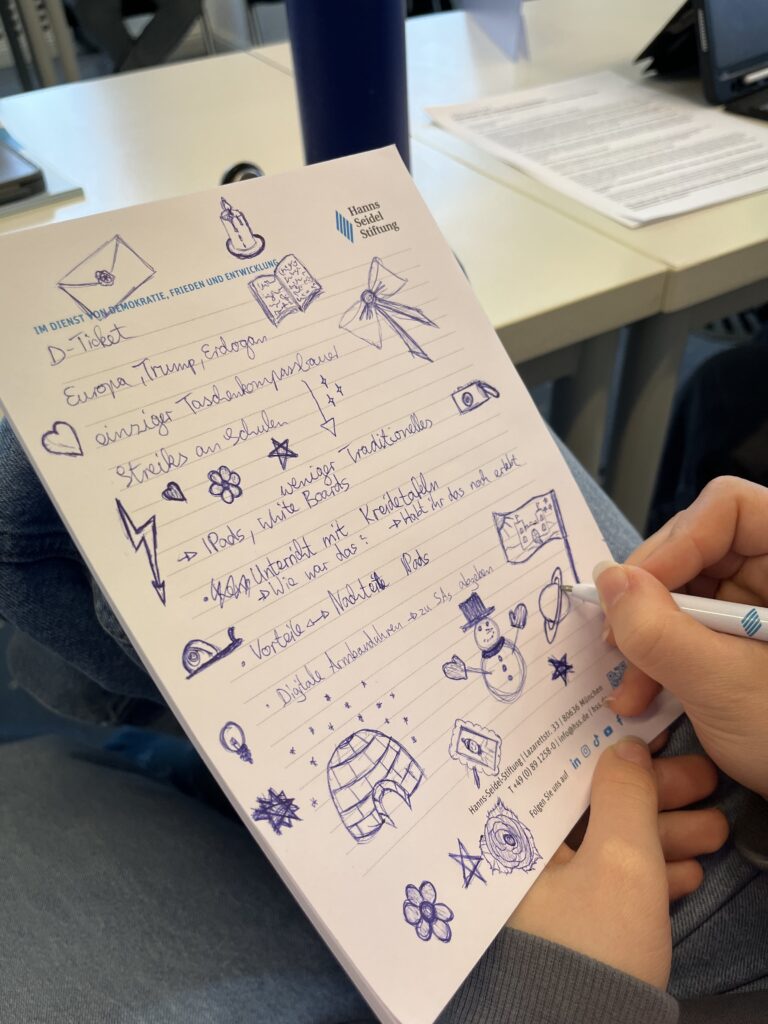 Hanns
Seidel
Stiftung
IM DIENST VON DEMOKRATIE, FRIEDEN UND ENTWICKLUNG
D-Ticket
Europa, Trump, Erdogan
einziger Taschenkompassbauer
Streiks an Schulen
weniger Traditionelles
→ IPads, white Boards
• Unterricht mit Kreidetafeln
→ Wie war das? → Habt ihr das noch erlebt
• Vorteile ↔ Nachteile IPads
• Digitale Armbanduhren → zu SAs abgeben
Hanns-Seidel-Stiftung | Lazarettstr. 33 | 80636 München
T +49 (0) 89 1258-0 | info@hss.de | hss.de
Folgen Sie uns auf